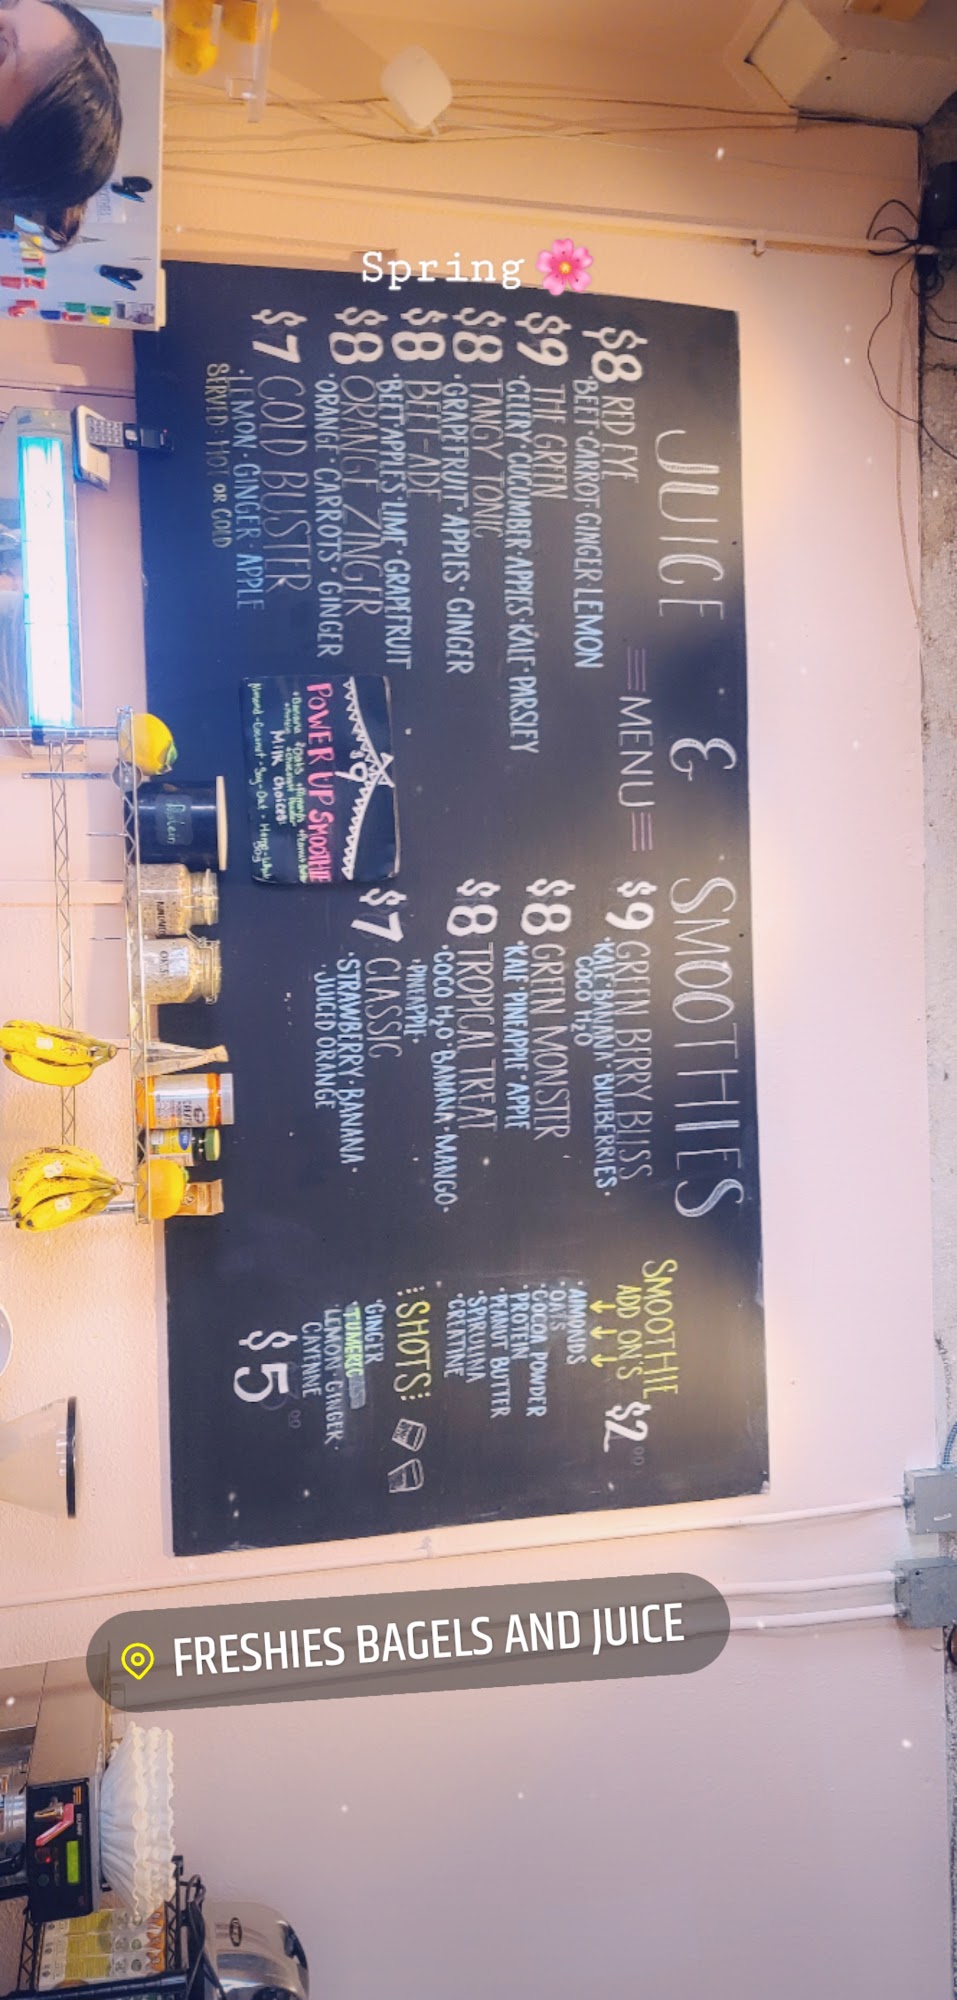 Spring
JUICE & SMOOTHIES
MENU
$8 RED EYE
·BEET·CARROT·GINGER·LEMON
$9 THE GREEN
·CELERY·CUCUMBER·APPLES·KALE·PARSLEY
$8 TANGY TONIC
·GRAPEFRUIT·APPLES·GINGER
$8 BEET-ADE
·BEET·APPLES·LIME·GRAPEFRUIT
$8 ORANGE ZINGER
·ORANGE·CARROTS·GINGER
$7 COLD BUSTER
·LEMON·GINGER·APPLE
SERVED HOT OR COLD
$9
POWER UP SMOOTHIE
Milk Choices:
Almond-Coconut-Soy-Oat-Hemp-Whole
$9 GREEN BERRY BLISS
·KALE·BANANA·BLUEBERRIES·
COCO H₂O
$8 GREEN MONSTER
·KALE·PINEAPPLE·APPLE
$8 TROPICAL TREAT
·COCO H₂O·BANANA·MANGO·
·PINEAPPLE·
$7 CLASSIC
·STRAWBERRY·BANANA·
·JUICED ORANGE
SMOOTHIE
ADD ON'S $2.00
·ALMONDS
·OATS
·COCOA POWDER
·PROTEIN
·PEANUT BUTTER
·SPIRULINA
·CREATINE
SHOTS
·GINGER
·TUMERIC
·LEMON·GINGER·
CAYENNE
$5.00
Protein
ALMONDS
OATS
FRESHIES BAGELS AND JUICE